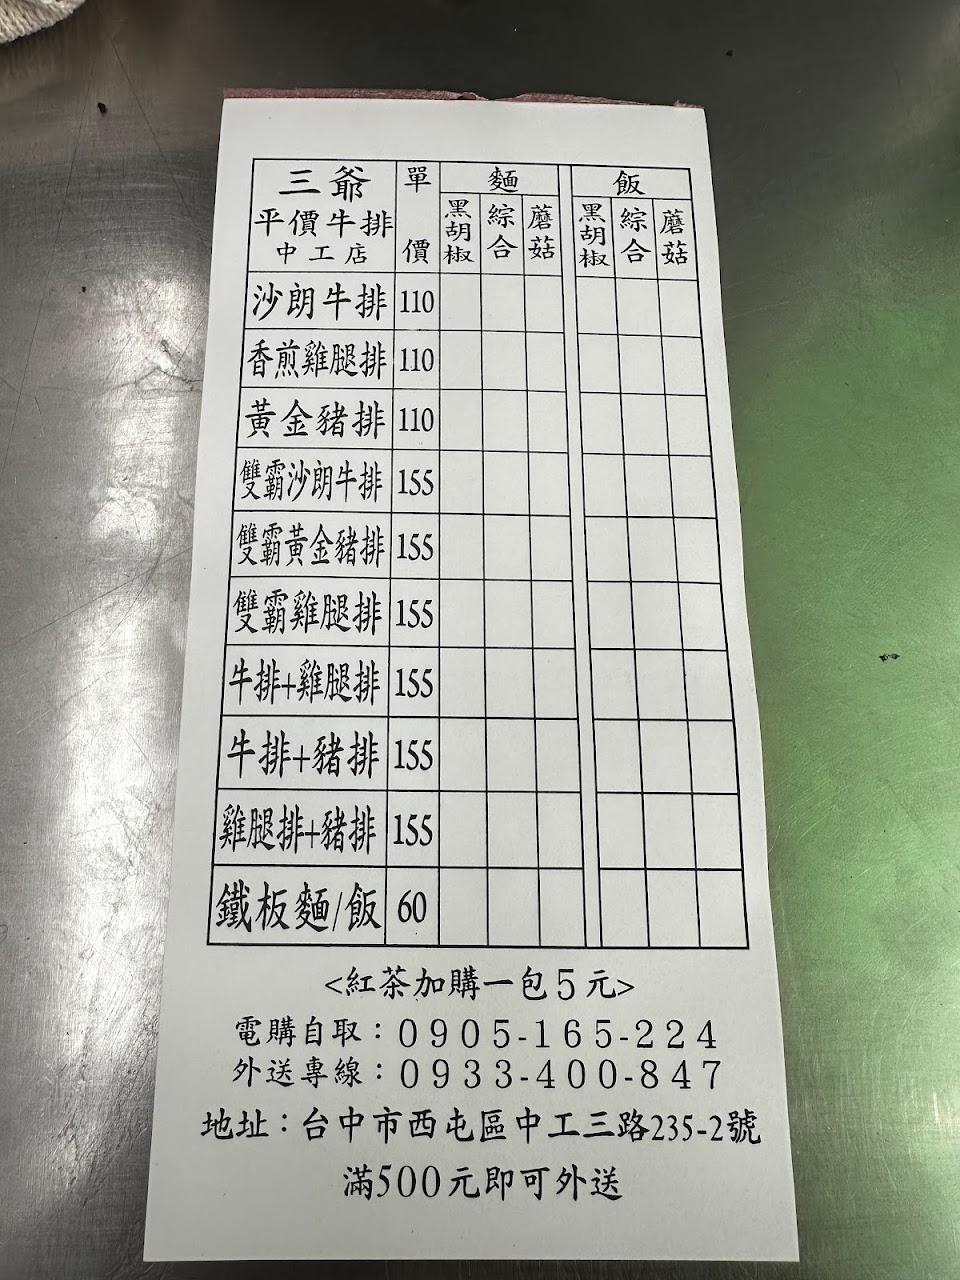 三爺
平價牛排
中工店
單價
麵
飯
黑胡椒 綜合 蘑菇 黑胡椒 綜合 蘑菇
沙朗牛排 110
香煎雞腿排 110
黃金豬排 110
雙霸沙朗牛排 155
雙霸黃金豬排 155
雙霸雞腿排 155
牛排+雞腿排 155
牛排+豬排 155
雞腿排+豬排 155
鐵板麵/飯 60
<紅茶加購一包5元>
電購自取：0905-165-224
外送專線：0933-400-847
地址：台中市西屯區中工三路235-2號
滿500元即可外送